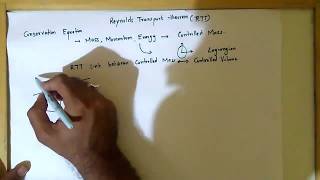 Reynolds Transport theorem (RTT)
Conservation Equation
→ Mass, Momentum Energy → Controlled Mass.
Lagrangian
RTT link between Controlled Mass ↔ Controlled Volume